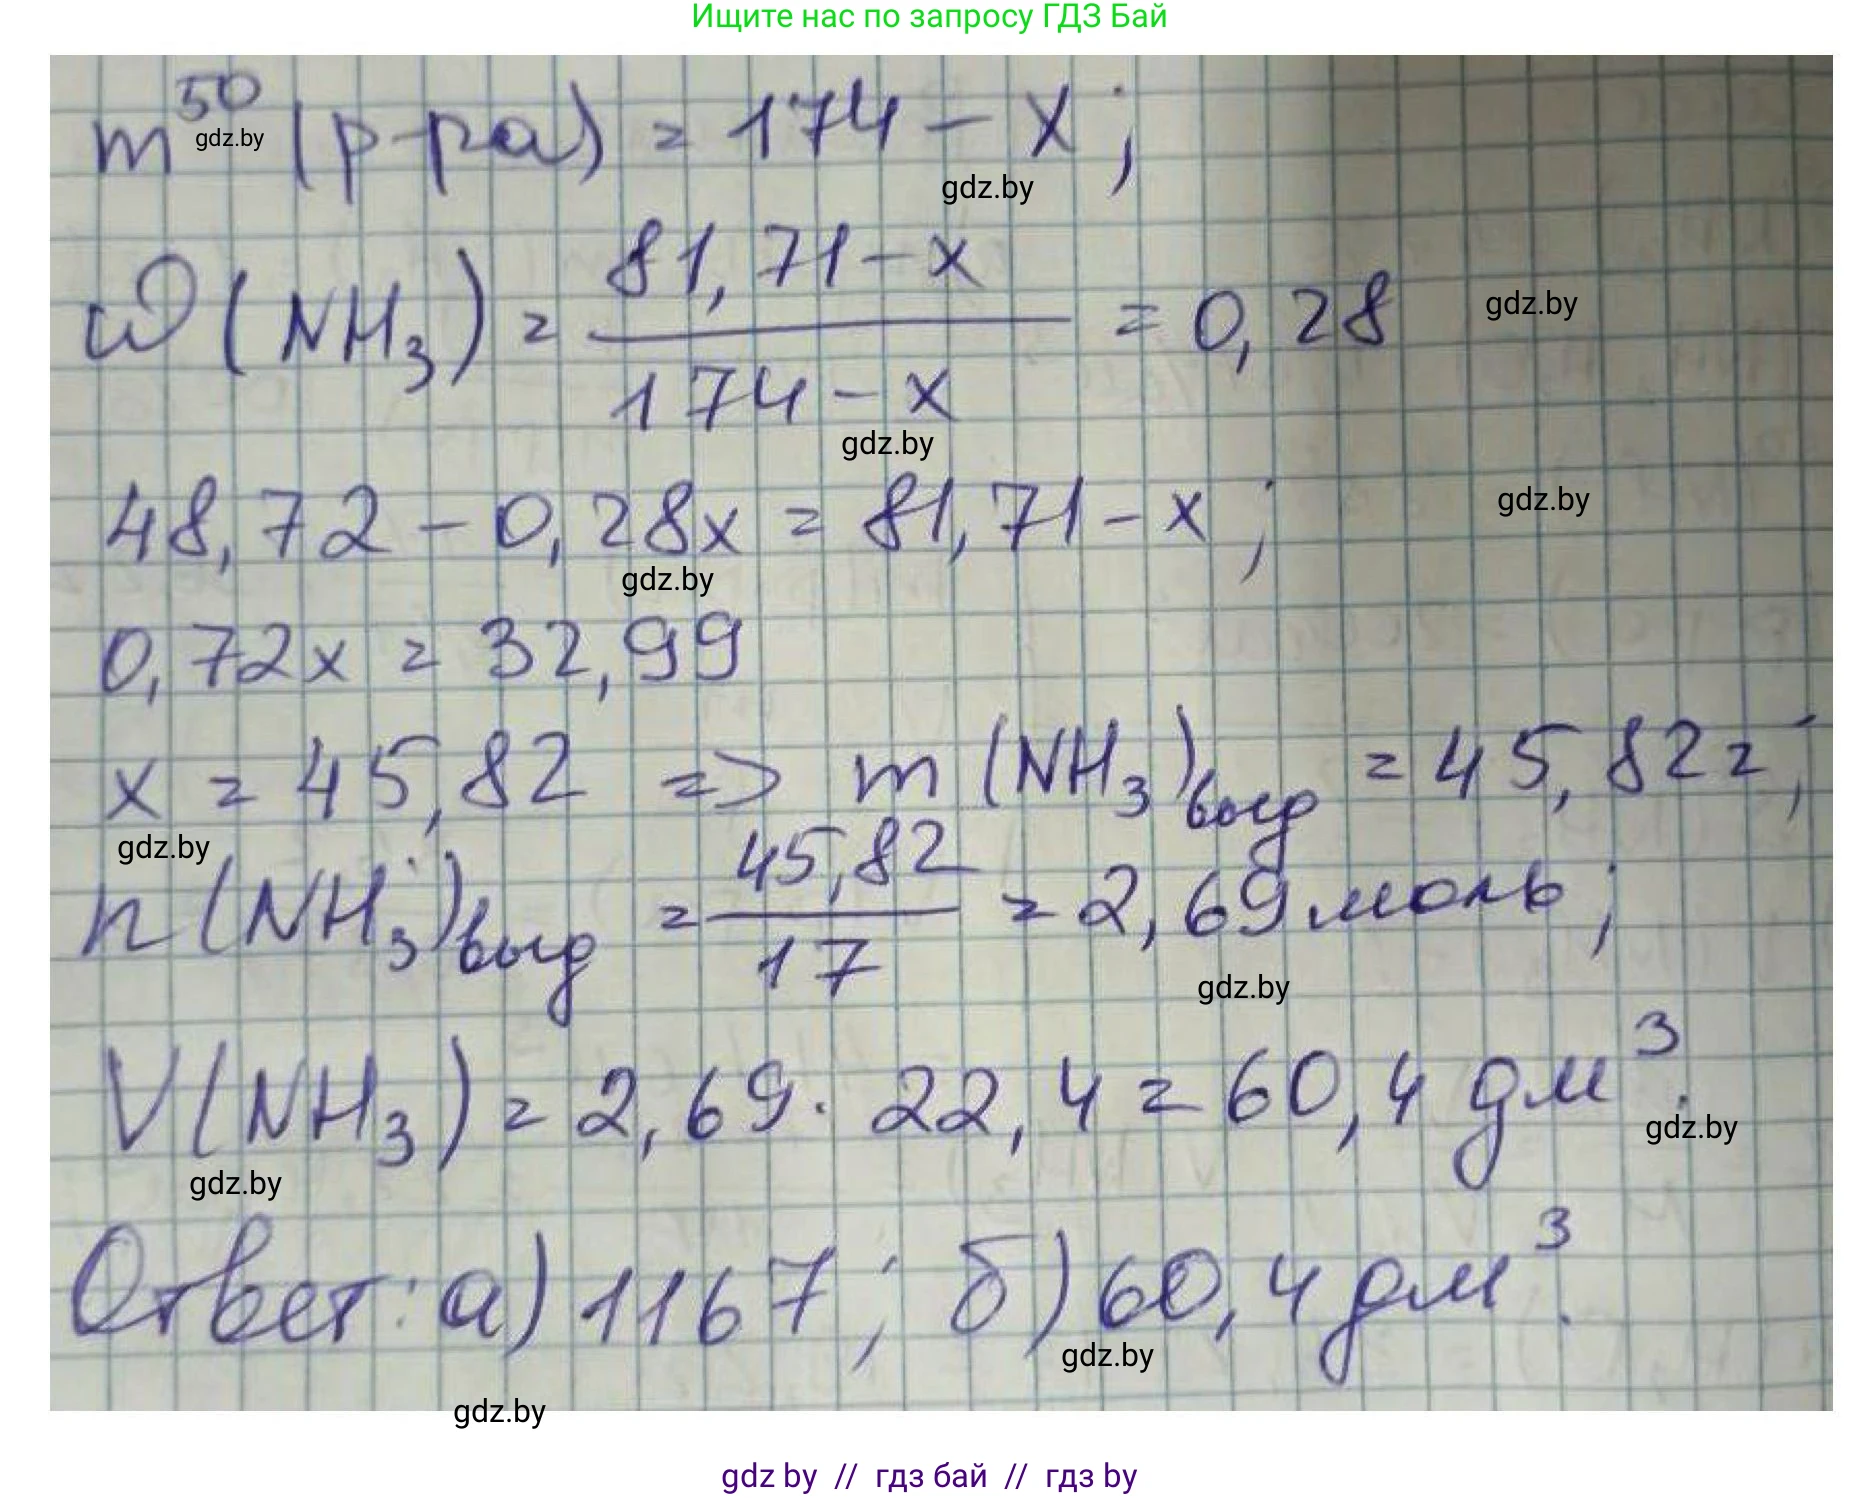 Ищите нас по запросу ГДЗ Бай
m⁵⁰ (р-ра) = 174 - x ;
gdz.by
gdz.by
ω (NH₃) = (81,71 - x) / (174 - x) = 0,28
gdz.by
gdz.by
48,72 - 0,28x = 81,71 - x ;
gdz.by
gdz.by
0,72x = 32,99
x = 45,82 => m (NH₃)выд = 45,82г ;
gdz.by
n (NH₃)выд = 45,82 / 17 = 2,69 моль ;
gdz.by
V(NH₃) = 2,69 · 22,4 = 60,4 дм³.
gdz.by
gdz.by
Ответ: а) 1167 ; б) 60,4 дм³.
gdz.by
gdz.by
gdz by // гдз бай // гдз by